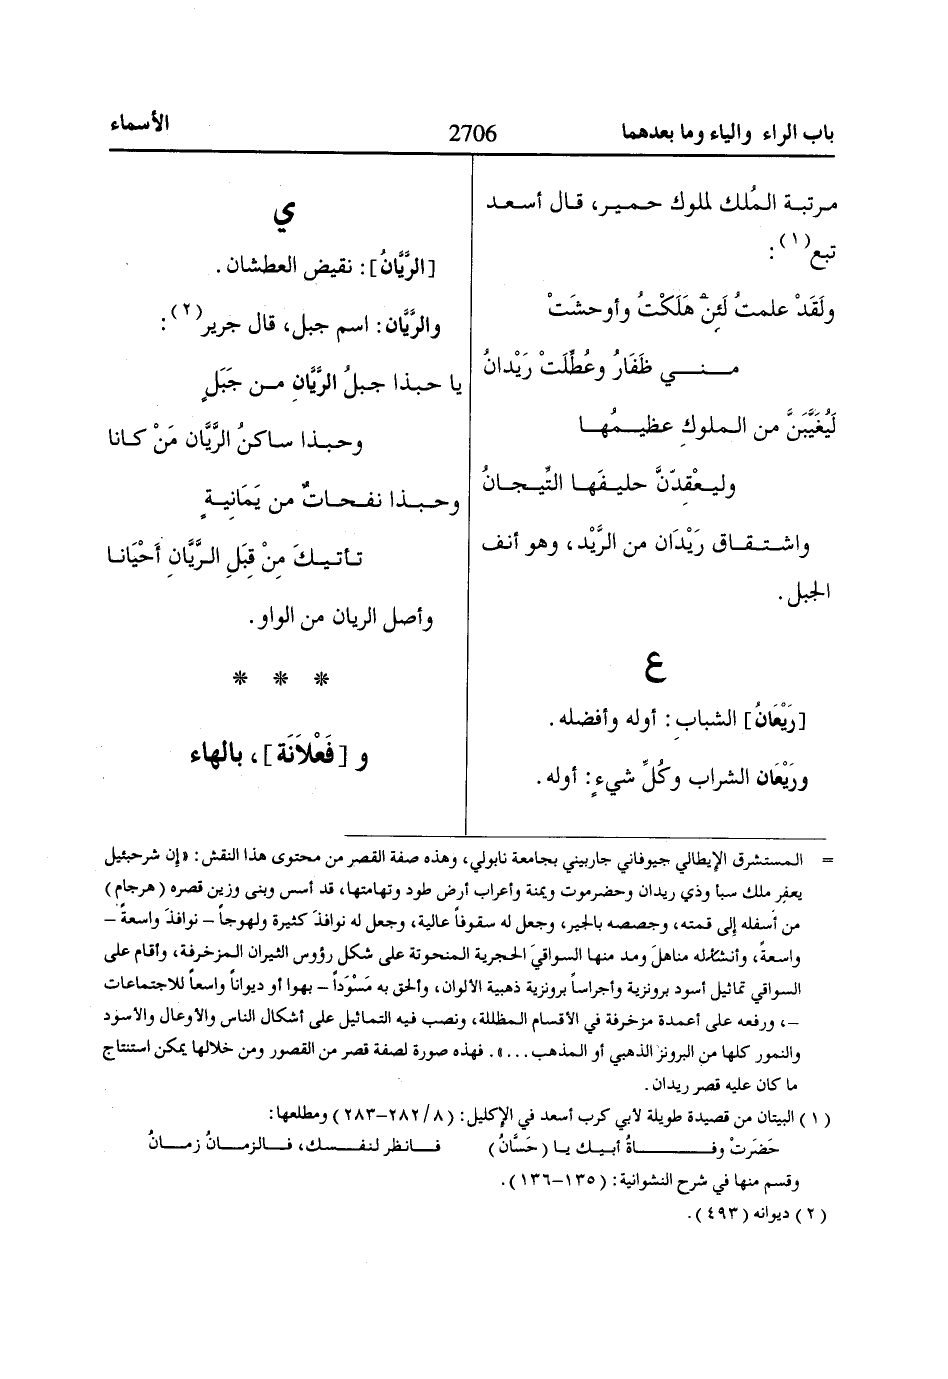 باب الراء والياء وما بعدهما
2706
الأسماء
مرتبة المُلك لملوك حمير، قال أسعد
تبع(١):
ولَقَدْ علمتُ لَئِنْ هَلَكْتُ وأوحشَتْ
منــي ظَفَارُ وعُطِّلَتْ رَيْدانُ
لَيُغَيَّبَنَّ من الملوكِ عظيمُها
وليعْقِدَنَّ حليفَها التِّيجانُ
واشتقاق رَيْدَان من الرَّيْد، وهو أنف
الجبل.
ع
[رَيْعَانُ] الشبابِ: أوله وأفضله.
ورَيْعَان الشراب وكُلِّ شيءٍ: أوله.
ي
[الرَّيَّانُ]: نقيض العطشان.
والرَّيَّان: اسم جبل، قال جرير(٢):
يا حبذا جبلُ الرَّيَّانِ من جَبَلٍ
وحبذا ساكنُ الرَّيَّان مَنْ كانا
وحبذا نفحاتٌ من يَمَانِيةٍ
تأتيكَ مِنْ قِبَلِ الرَّيَّانِ أَحْيَانا
وأصل الريان من الواو.
* * *
و [فَعْلاَنَة]، بالهاء
= المستشرق الإيطالي جيوفاني جاربيني بجامعة نابولي، وهذه صفة القصر من محتوى هذا النقش: «إن شرحبئيل
يعفر ملك سبأ وذي ريدان وحضرموت ويمنة وأعراب أرض طود وتهامتها، قد أسس وبنى وزين قصره (هرجام)
من أسفله إلى قمته، وجصصه بالجير، وجعل له سقوفاً عالية، وجعل له نوافذَ كثيرة ولهوجاً – نوافذَ واسعةً –
واسعةً، وأنشأله مناهلَ ومد منها السواقيَ الحجرية المنحوتة على شكل رؤوس الثيران المزخرفة، وأقام على
السواقي تماثيل أسود برونزية وأجراساً برونزية ذهبية الألوان، وألحق به مَسْوَداً – بهوا أو ديواناً واسعاً للاجتماعات
–، ورفعه على أعمدة مزخرفة في الأقسام المظللة، ونصب فيه التماثيل على أشكال الناس والأوعال والأسود
والنمور كلها من البرونز الذهبي أو المذهب...». فهذه صورة لصفة قصر من القصور ومن خلالها يمكن استنتاج
ما كان عليه قصر ريدان.
(١) البيتان من قصيدة طويلة لأبي كرب أسعد في الإكليل: (٨/ ٢٨٢–٢٨٣) ومطلعها:
حَضَرتْ وفــاةُ أبيك يا (حَسَّانُ) فانظر لنفسك، فالزمانُ زمانُ
وقسم منها في شرح النشوانية: (١٣٥–١٣٦).
(٢) ديوانه (٤٩٣).